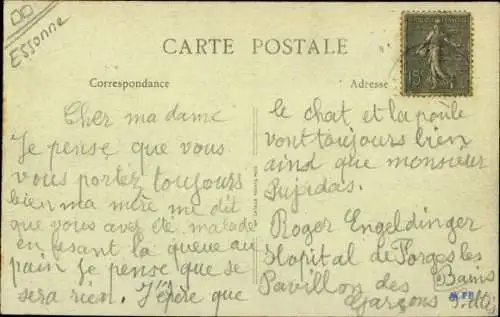 Essonne
CARTE POSTALE
Correspondance
Adresse
15c
Cher madame
Je pense que vous
vous portez toujours
bien ma mère me dit
que vous avez été malade
en fesant la queue au
pain Je pense que se
sera rien. J'éspère que
le chat et la poule
vont toujours bien
ainsi que monsieur
Sujadas.
Roger Engeldinger
Hopital de Forges les
Bains
Pavillon des
Garçons